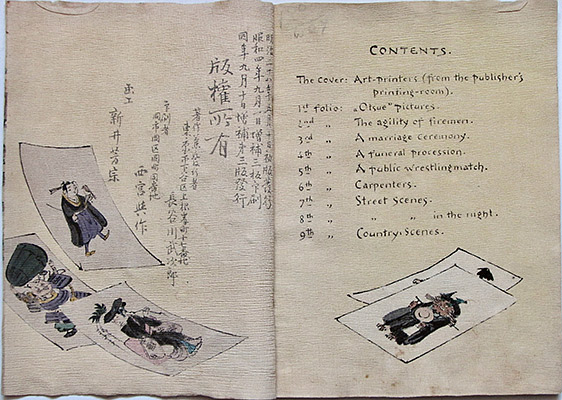 昭和四年九月一日增補三版印刷
同年九月十日增補第三版發行
版權所有
長谷川武次郎
西宮與作
画工
新井芳宗
CONTENTS.
The cover: Art-printers (from the publisher's
printing-room).
1st folio: „Otsue" pictures.
2nd „ The agility of firemen.
3rd „ A marriage ceremony.
4th „ A funeral procession.
5th „ A public wrestling match.
6th „ Carpenters.
7th „ Street Scenes.
8th „ „ „ in the night.
9th „ Country Scenes.